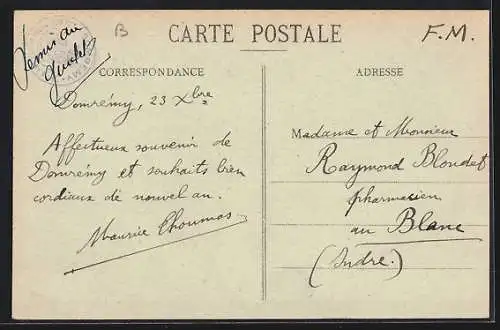 B
CARTE POSTALE
F.M.
CORRESPONDANCE
ADRESSE
Domrémy, 23 Xbre
Affectueux souvenir de
Domrémy et souhaits bien
cordiaux de nouvel an.
Maurice Thoumas
Madame et Monsieur
Raymond Blondet
pharmacien
au Blanc
(Indre.)